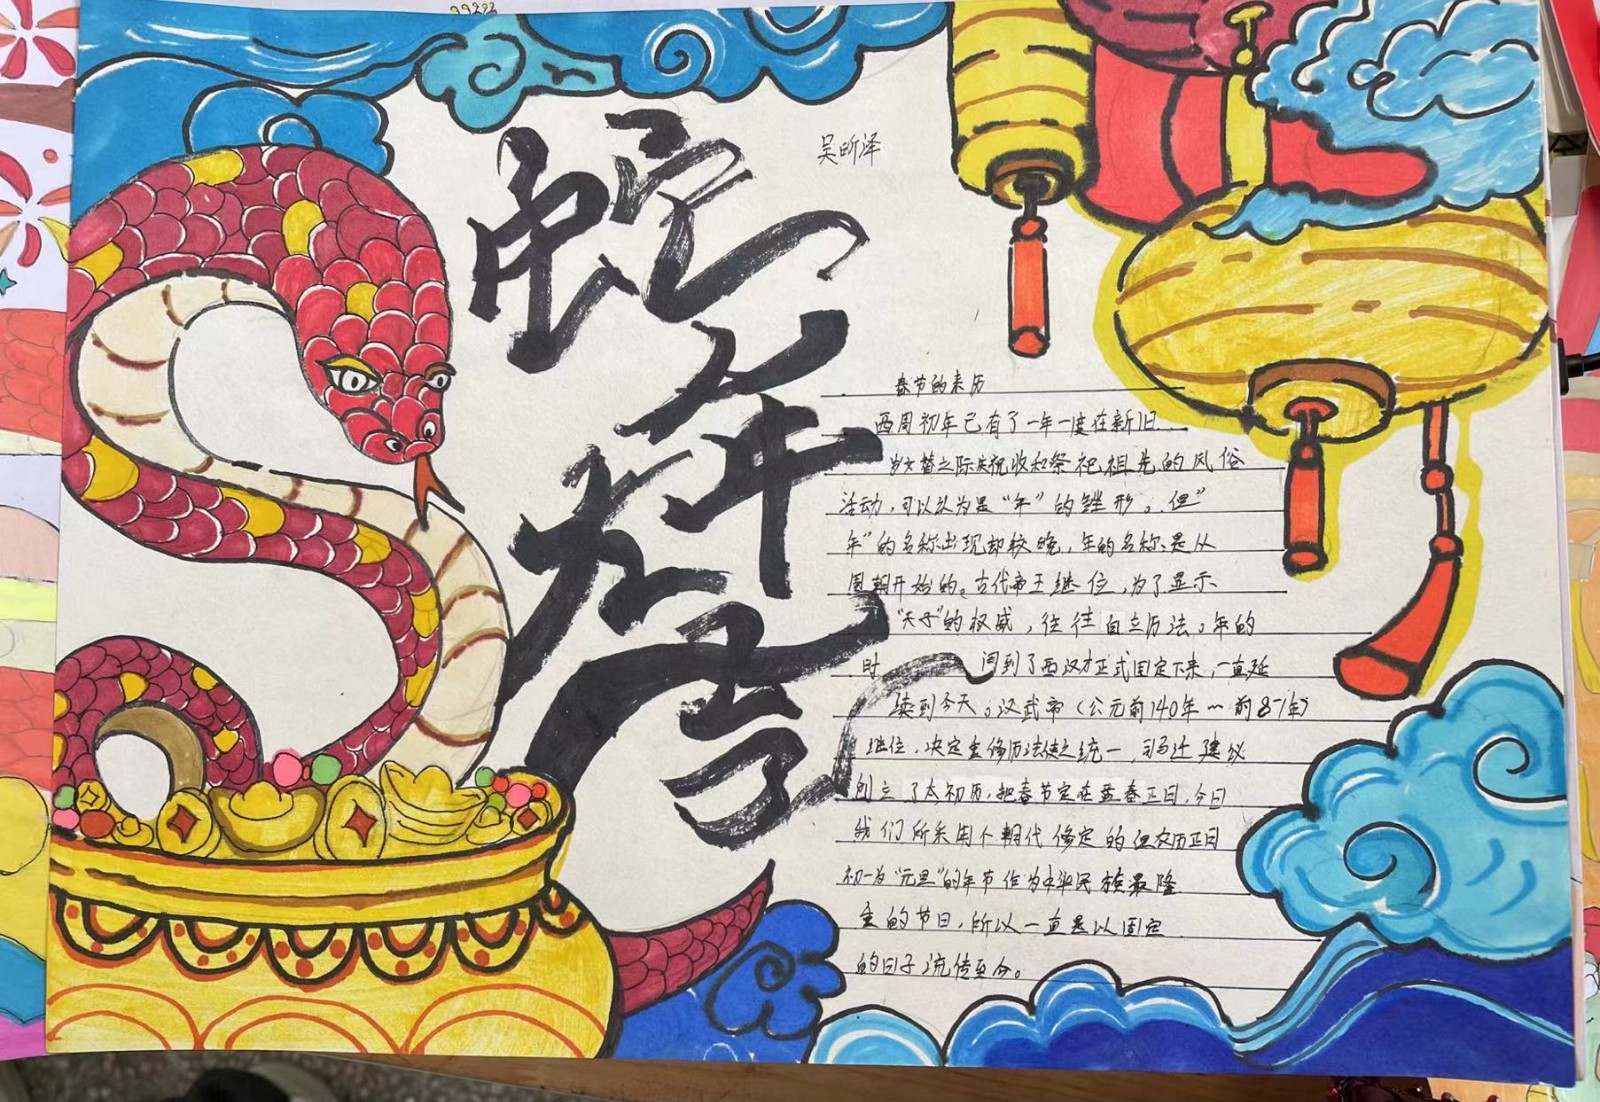 蛇年大吉
吴昕泽
春节的来历
西周初年已有了一年一度在新旧
岁交替之际庆祝收和祭祀祖先的风俗
活动，可以认为是“年”的雏形。但”
年”的名称出现却较晚，年的名称是从
周朝开始的。古代帝王继位，为了显示
“天子”的权威，往往自立历法。年的
时间到了西汉才正式固定下来，一直延
续到今天。汉武帝（公元前140年～前87年）
继位，决定重修历法使之统一，司马迁建议
创立了太初历，把春节定在孟春正日，今日
我们所采用个朝代修定的但农历正日
初一为“元旦”的年节作为中华民族最隆
重的节日，所以一直是以固定
的日子流传至今。